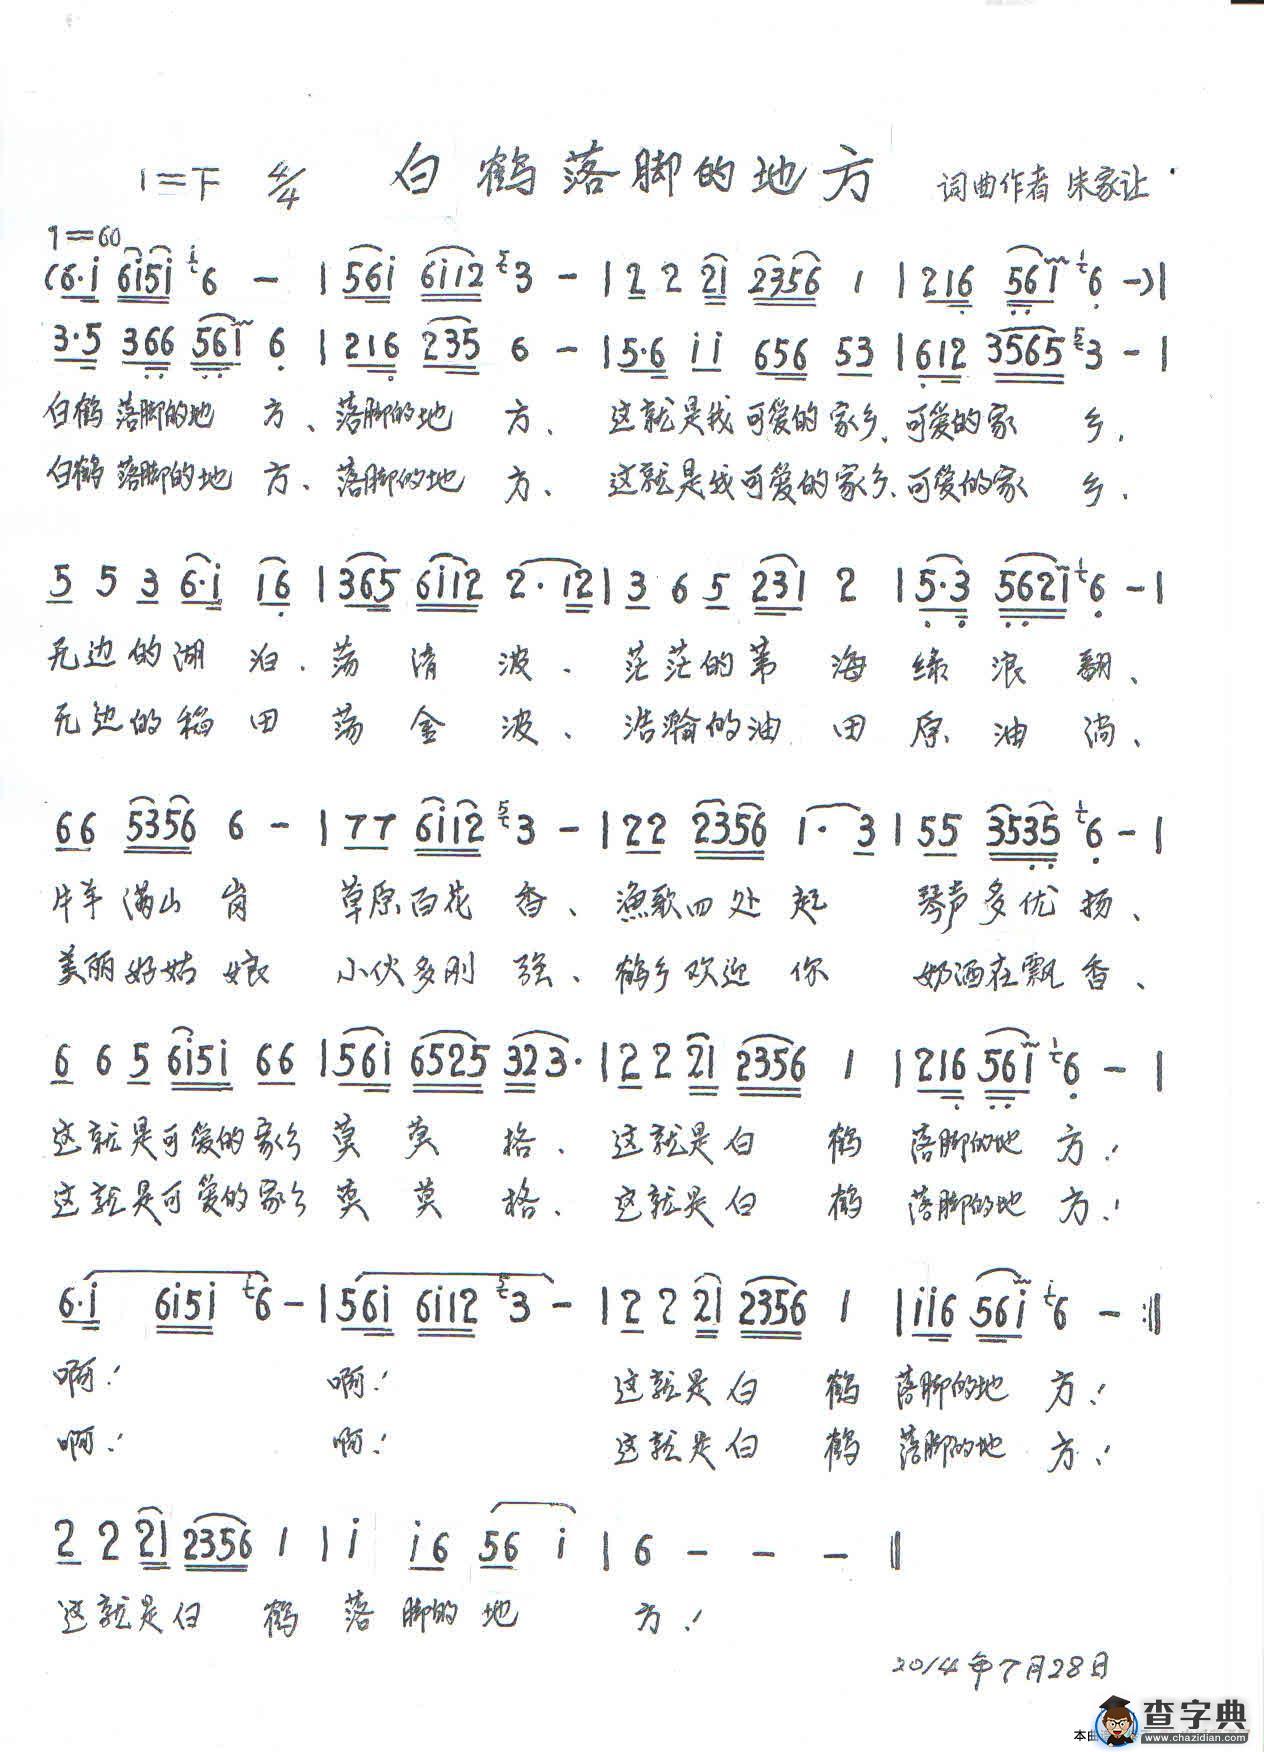 白鹤落脚的地方
1=F 4/4 词曲作者 朱家让
♩=60
(6·i 6i5i i6 - | 56i 6i12 53 - | 2 2 21 2356 1 | 216 561 16 -)|
3·5 366 561 6 | 216 235 6 - | 5·6 ii 656 53 | 612 3565 53 - |
白鹤落脚的地方、落脚的地方、这就是我可爱的家乡、可爱的家乡,
白鹤落脚的地方、落脚的地方、这就是我可爱的家乡、可爱的家乡、
5 5 3 6·i i6 | 365 6i12 2·12 | 3 6 5 231 2 | 5·3 5621 16 - |
无边的湖泊、荡清波、茫茫的苇海绿浪翻、
无边的稻田荡金波、浩瀚的油田原油淌、
66 5356 6 - | 77 6i12 53 - | 22 2356 1·3 | 55 3535 16 - |
牛羊满山岗 草原百花香、渔歌四处起 琴声多优扬、
美丽好姑娘 小伙多刚强、鹤乡欢迎你 奶酒在飘香、
6 6 5 6i5i 66 | 56i 6525 323· | 2 2 21 2356 1 | 216 561 16 - |
这就是可爱的家乡莫莫格、这就是白鹤落脚的地方!
这就是可爱的家乡莫莫格、这就是白鹤落脚的地方!
6·i 6i5i i6 - | 56i 6i12 53 - | 2 2 21 2356 1 | ii6 56i i6 - :‖
啊! 啊! 这就是白鹤落脚的地方!
啊! 啊! 这就是白鹤落脚的地方!
2 2 21 2356 1 | i i6 56 i | 6 - - - ‖
这就是白鹤落脚的地方!
2014年7月28日
查字典
www.chazidian.com
本曲